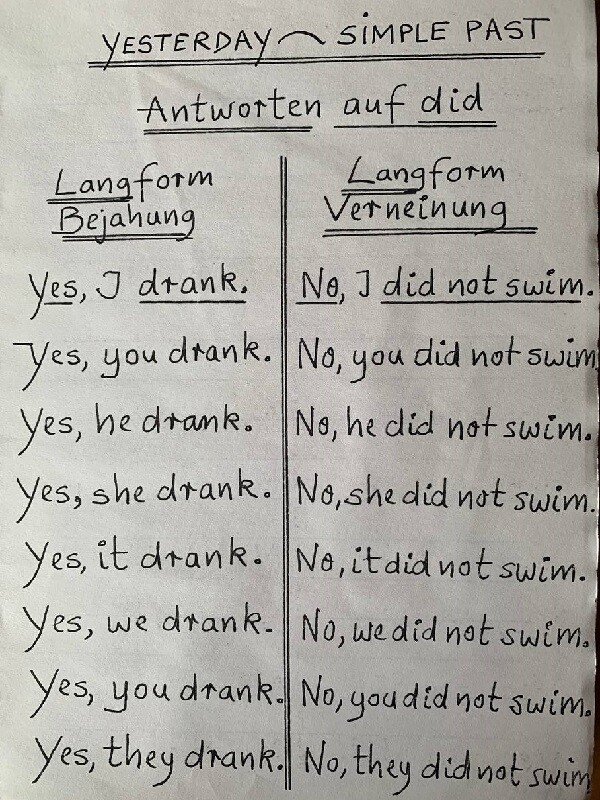 YESTERDAY ~ SIMPLE PAST
Antworten auf did
Langform
Bejahung
Yes, I drank.
Yes, you drank.
Yes, he drank.
Yes, she drank.
Yes, it drank.
Yes, we drank.
Yes, you drank.
Yes, they drank.
Langform
Verneinung
No, I did not swim.
No, you did not swim
No, he did not swim.
No, she did not swim.
No, it did not swim.
No, we did not swim.
No, you did not swim.
No, they did not swim